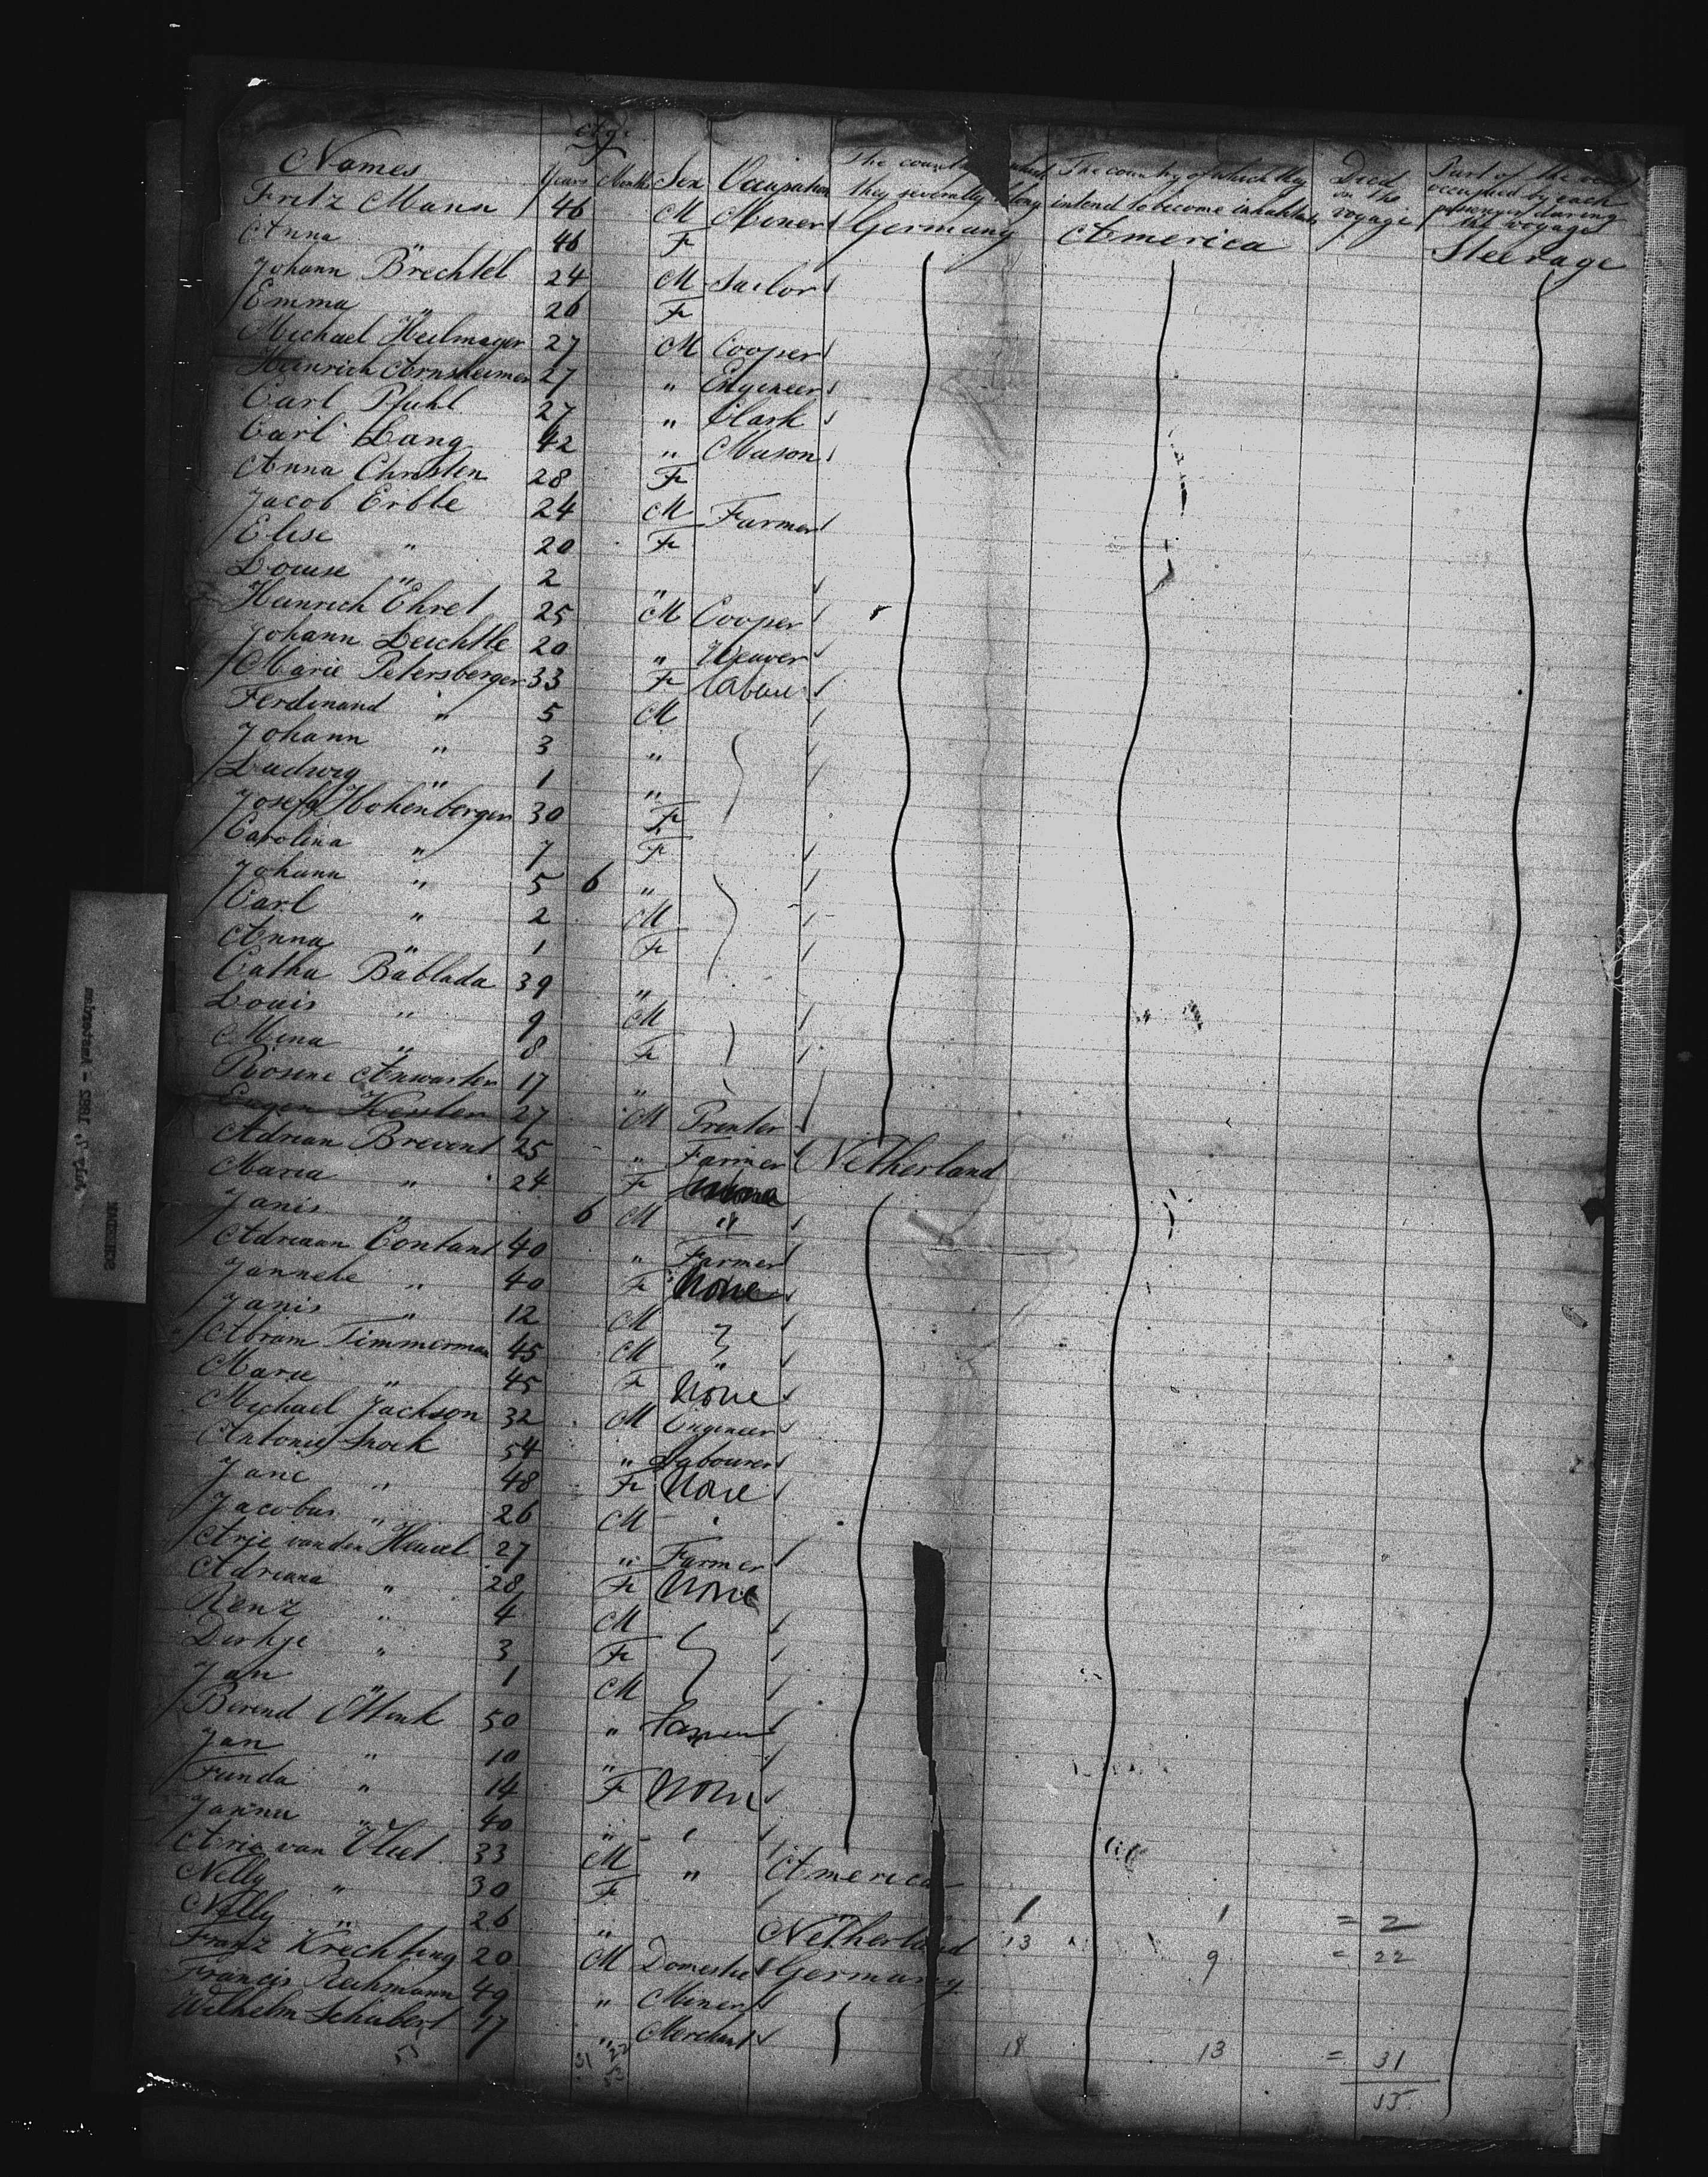 Age
Names Years Month Sex Occupation The country to which they severally belong The country of which they intend to become inhabitants Died on the voyage Part of the occupied by each passenger during the voyage
Fritz Mann 46 M Miner Germany America Steerage
Anna " 46 F
Johann Brechtel 24 M Sailor
Emma " 26 F
Michael Heilmayer 27 M Cooper
Heinrich Arnsheimer 27 " Engineer
Carl Pfahl 27 " Clark
Carl Lang 42 " Mason
Anna Christen 28 F
Jacob Erble 24 M Farmer
Elise " 20 F
Louise " 2 "
Heinrich Ehret 25 M Cooper
Johann Leichtle 20 " Weaver
Marie Petersberger 33 F
Ferdinand " 5 M
Johann " 3 "
Ludwig " 1 "
Josefa Hohenberger 30 F
Carolina " 7 F
Johann " 5 6 "
Carl " 2 M
Anna " 1 F
Catha Bäblada 39 "
Louis " 9 M
Mina " 8 F
Rosine Anwarter 17 "
Eugen Kessler 27 M Printer
Adrian Brevent 25 " Farmer Netherland
Maria " 24 F
Janis " 6 M "
Adriaan Contant 40 " Farmer
Jannete " 40 F None
Janis " 12 M
Abram Timmerman 45 M "
Marie " 45 F None
Michael Jackson 32 M Engineer
Antonie Snoek 54 " Labourer
Jane " 48 F None
Jacobus " 26 M
Arie van den Heuvel 27 " Farmer
Adriana " 28 F None
Renz " 4 M
Dirkje " 3 F
Jan " 1 M
Berend Mink 50 "
Jan " 10 "
Funda " 14 F None
Janna " 40 "
Arie van Vliet 33 M " America
Nelly " 30 F
Nelly " 26 " Netherland 1 1 = 2
Franz Krechting 20 M Domestic Germany 13 9 = 22
Francis Reihmann 49 " Miner
Wilhelm Schubert 17 " Merchant
31 22 18 13 = 31
53 55